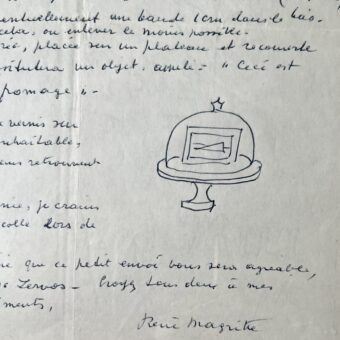 éventuellement une bande 1 cm dans le bas.
cela, ou enlever le moins possible.
, placée sur un plateau et recouverte
stituera un objet, appelé = "Ceci est
fromage" -
vernis sur
souhaitables,
retrouvent
, je crains
colle lors de
que ce petit envoi vous sera agréable,
Zervos - Croyez tous deux à mes
ments,
René Magritte